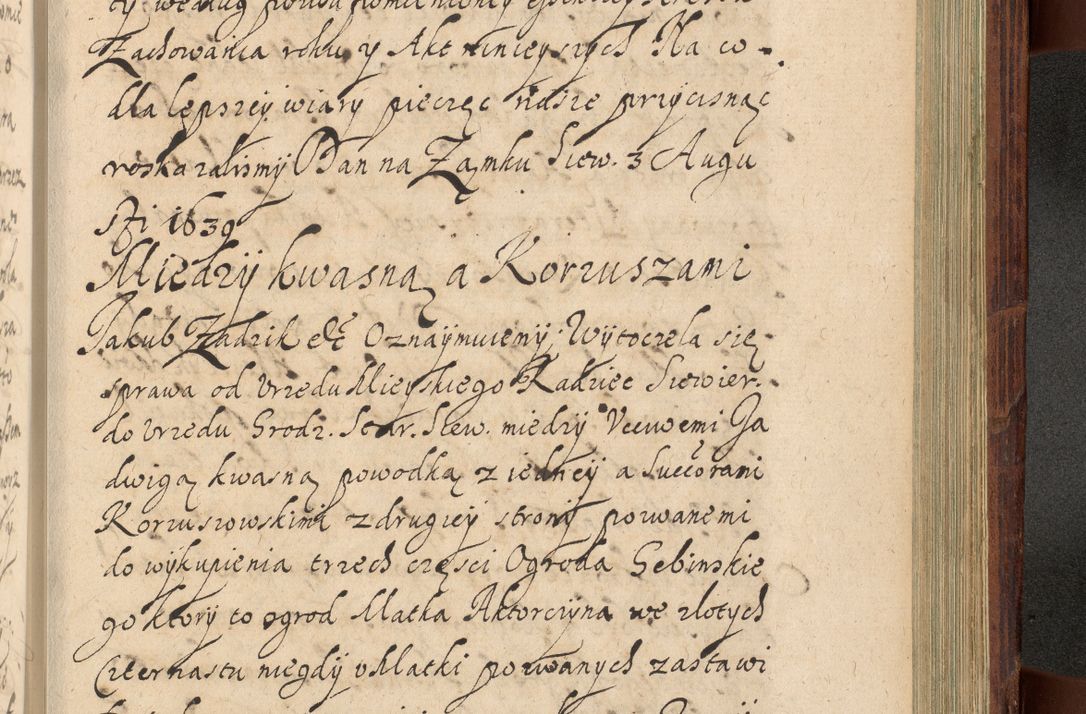 ty według powsu pomienioney
Zachowania roku y Akt ninieyszych Na co
dla lepszey wiary pieczęc nasze przycisnąc
roskazalismy Dan na Zamku Siew. 3 Augu
sti 1639
Miedzy kwasną a Korzuszami
Jakub Zadzik etc Oznaymuiemy, Wytoczela się
sprawa od Urzedu Mieyskiego Radziec Siewier.
do Urzedu Grodz. Star. Siew. miedzy Ucciwemi Ja
dwigą kwasną powodką z iedney a Succorami
Korzuszowskimi z drugiey strony pozwanemi
do wykupienia trzech częsci Ogroda Gebinskie
go ktory to ogrod Matka Aktorciyna we zlotych
Czternastu niegdy u Matki pozwanych zastawi